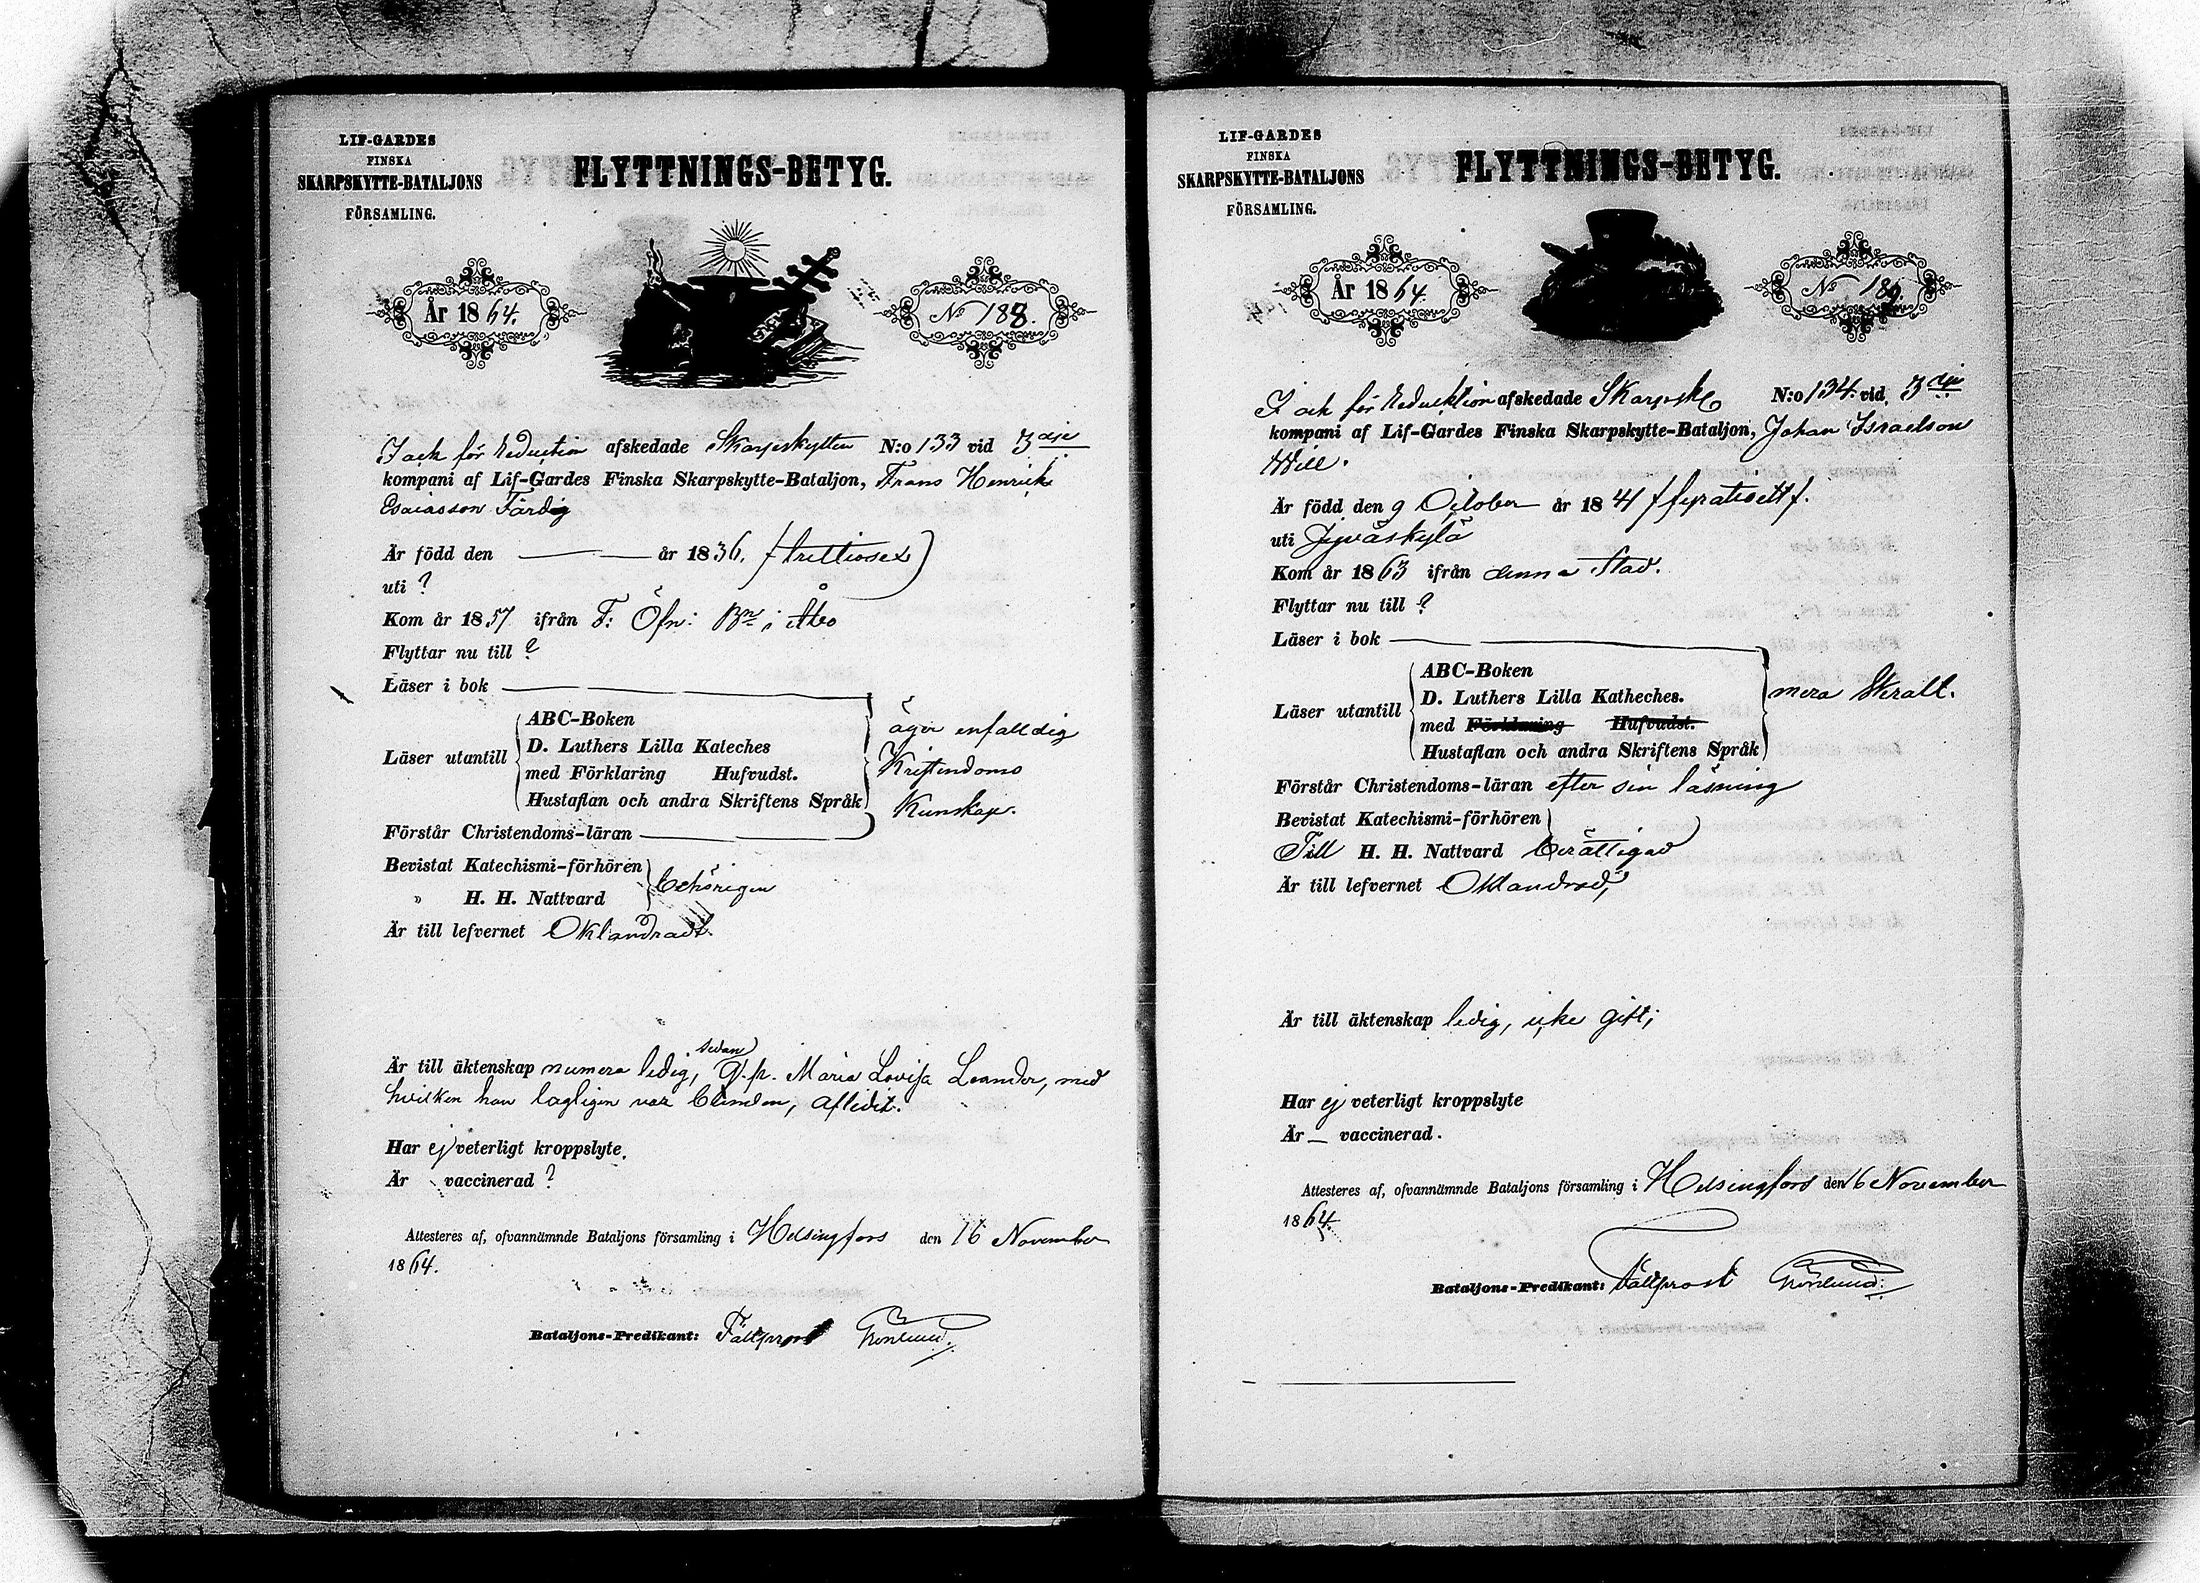 LIF-GARDES
FINSKA
SKARPSKYTTE-BATALJONS
FÖRSAMLING.
FLYTTNINGS-BETYG.
År 1864.
No 188.
I och för Reduction afskedade Skarpskytten N:o 133 vid 3dje
kompani af Lif-Gardes Finska Skarpskytte-Bataljon, Frans Henrik
Esaiasson Färdig
Är född den — år 1836. (trettiosex)
uti ?
Kom år 1857 ifrån F: Öfn: Bn i Åbo
Flyttar nu till ?
Läser i bok —
Läser utantill
ABC-Boken
D. Luthers Lilla Kateches
med Förklaring Hufvudst.
Hustaflan och andra Skriftens Språk
Förstår Christendoms-läran —
äger enfaldig
Kristendoms
Kunskap.
Bevistat Katechismi-förhören
" H. H. Nattvard
behörigen
Är till lefvernet Oklandradt.
Är till äktenskap numera ledig, sedan Maria Lovisa Leander, med
hvilken han lagligen var, afledit.
Har ej veterligt kroppslyte.
Är vaccinerad ?
Attesteres af, ofvannämnde Bataljons församling i Helsingfors den 16 November
1864.
Bataljons-Predikant: Fältprost Grönlund.
LIF-GARDES
FINSKA
SKARPSKYTTE-BATALJONS
FÖRSAMLING.
FLYTTNINGS-BETYG.
År 1864.
No 189.
I och för Reducktion afskedade Skarpsk N:o 134. vid 3dje
kompani af Lif-Gardes Finska Skarpskytte-Bataljon, Johan Israelson
Will.
Är född den 9 October år 1841 (fyratioett).
uti Jyväskylä
Kom år 1863 ifrån denna Stad.
Flyttar nu till ?
Läser i bok —
Läser utantill
ABC-Boken
D. Luthers Lilla Katheches.
med Förklaring Hufvudst.
Hustaflan och andra Skriftens Språk
mera
Förstår Christendoms-läran efter sin läsning
Bevistat Katechismi-förhören
Till H. H. Nattvard berättigad
Är till lefvernet Oklandrad,
Är till äktenskap ledig, icke gift;
Har ej veterligt kroppslyte
Är — vaccinerad.
Attesteres af, ofvannämnde Bataljons församling i Helsingfors den 16 November
1864.
Bataljons-Predikant: Fältprost Grönlund.